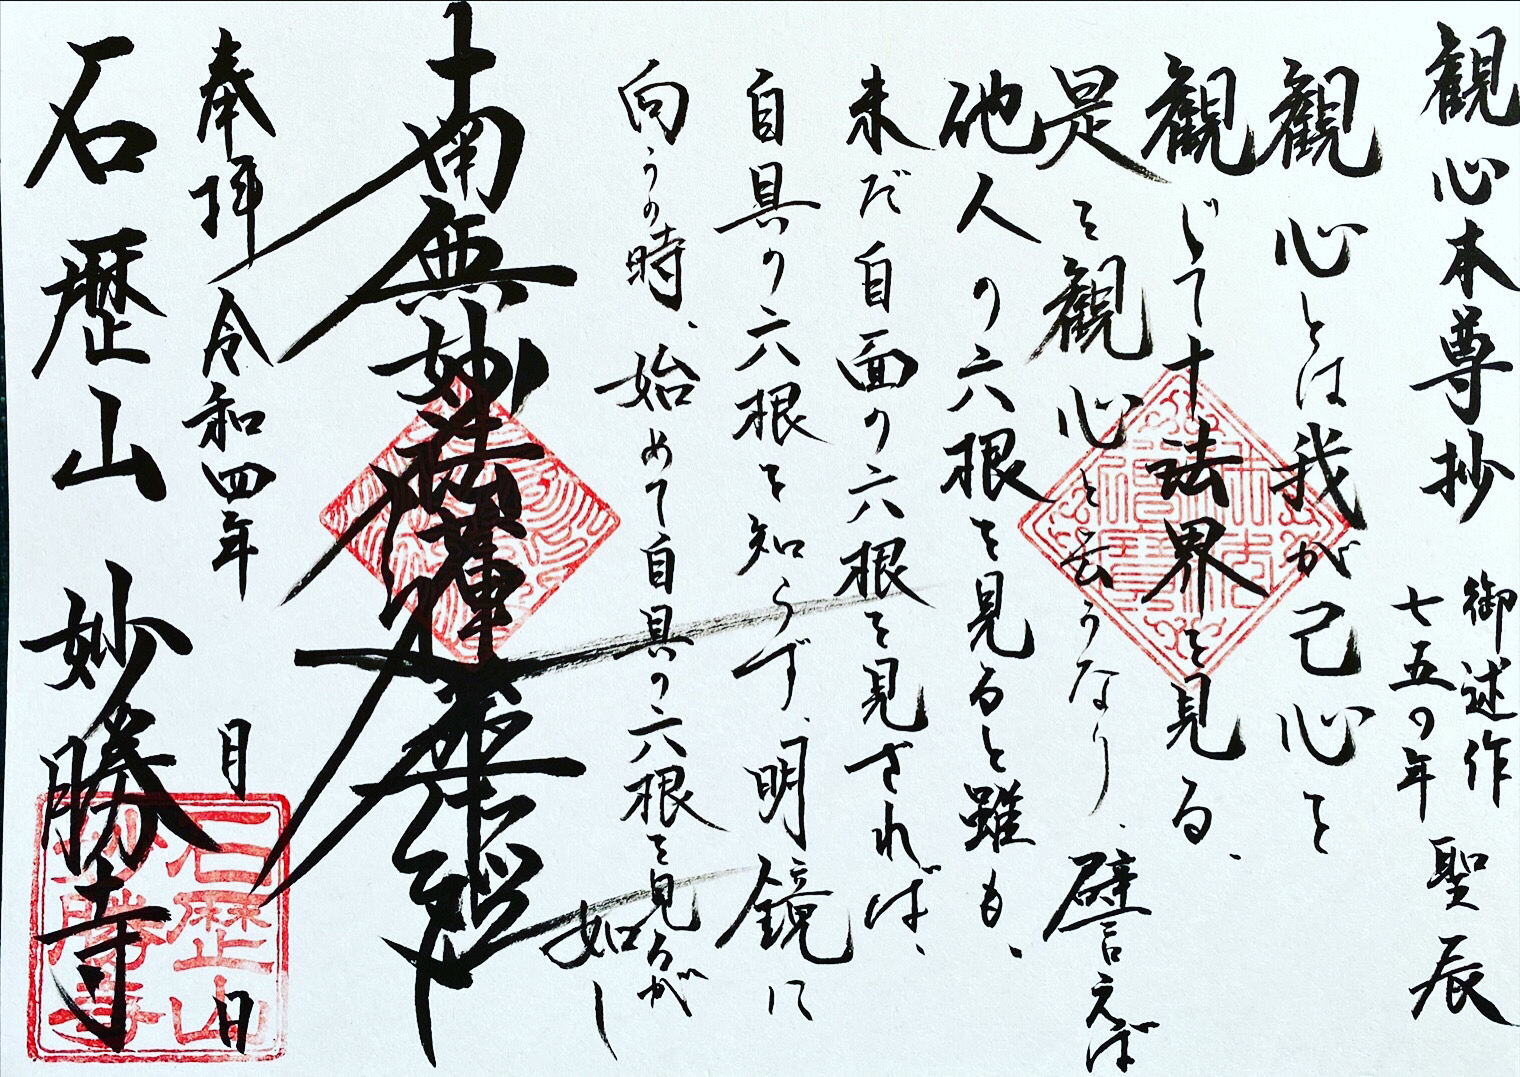 観心本尊抄
御述作
七五〇年
聖辰
観心とは我が己心を
観じて十法界を見る、
是を観心と云うなり、譬えば
他人の六根を見ると雖も、
未だ自面の六根を見ざれば、
自具の六根を知らず、明鏡に
向うの時、始めて自具の六根を見るが
如し
南無妙法蓮華経
奉拝 令和四年 月 日
石歴山 妙勝寺
石歴山
妙勝寺